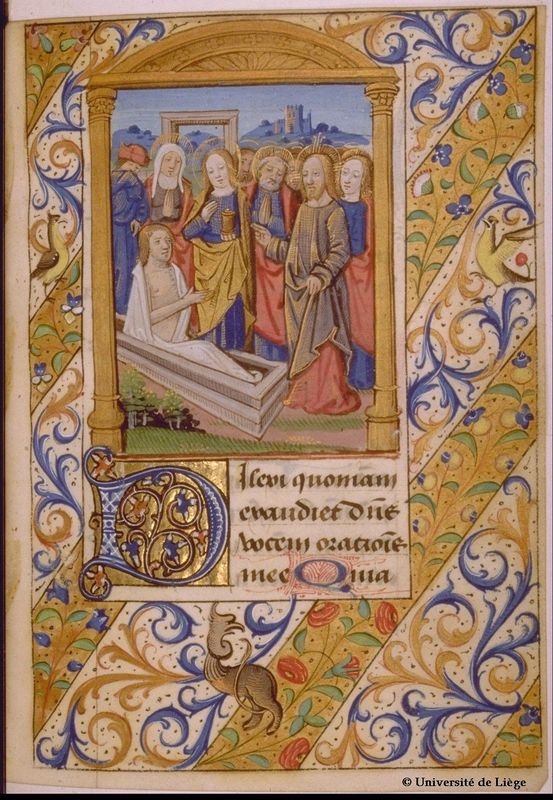 Dilexi quoniam
exaudiet dñs
vocem oracionis
mee Quia
© Université de Liège